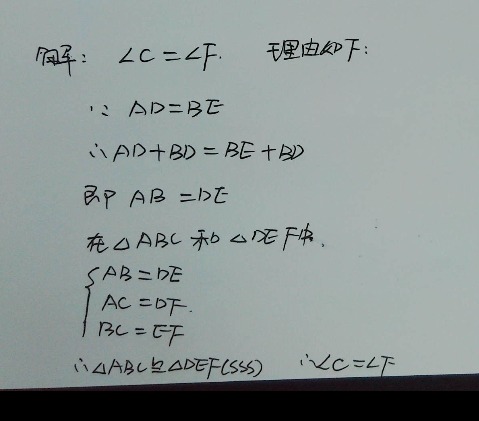 解: ∠C=∠F. 理由如下:
∵ AD=BE
∴AD+BD=BE+BD
即 AB =DE
在△ABC 和 △DEF中,
{AB=DE
AC=DF.
BC=EF
∴△ABC≌△DEF(SSS) ∴∠C=∠F